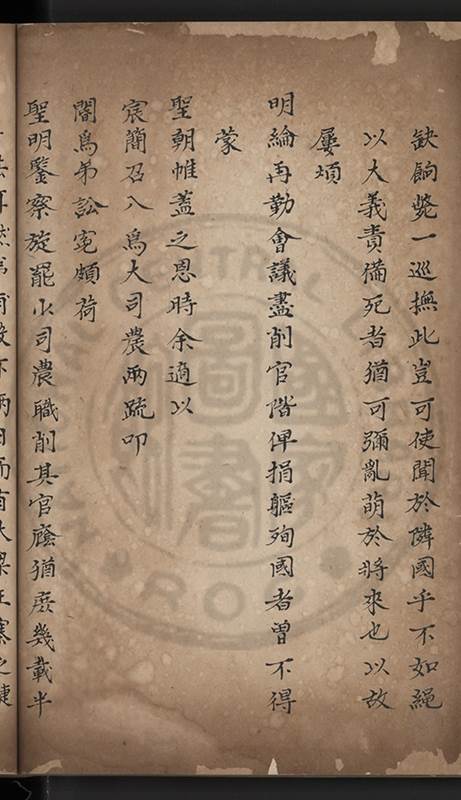 缺餉斃一巡撫此豈可使聞於隣國乎不如繩
以大義責備死者猶可彌亂萌於將來也以故
屢煩
明綸再勤會議盡削官階俾捐軀殉國者曾不得
蒙
聖朝帷蓋之恩時余適以
宸簡召入爲大司農兩䟽叩
閽爲弟訟寃頗荷
聖明鑒察旋罷小司農職削其官廕猶庶幾載半